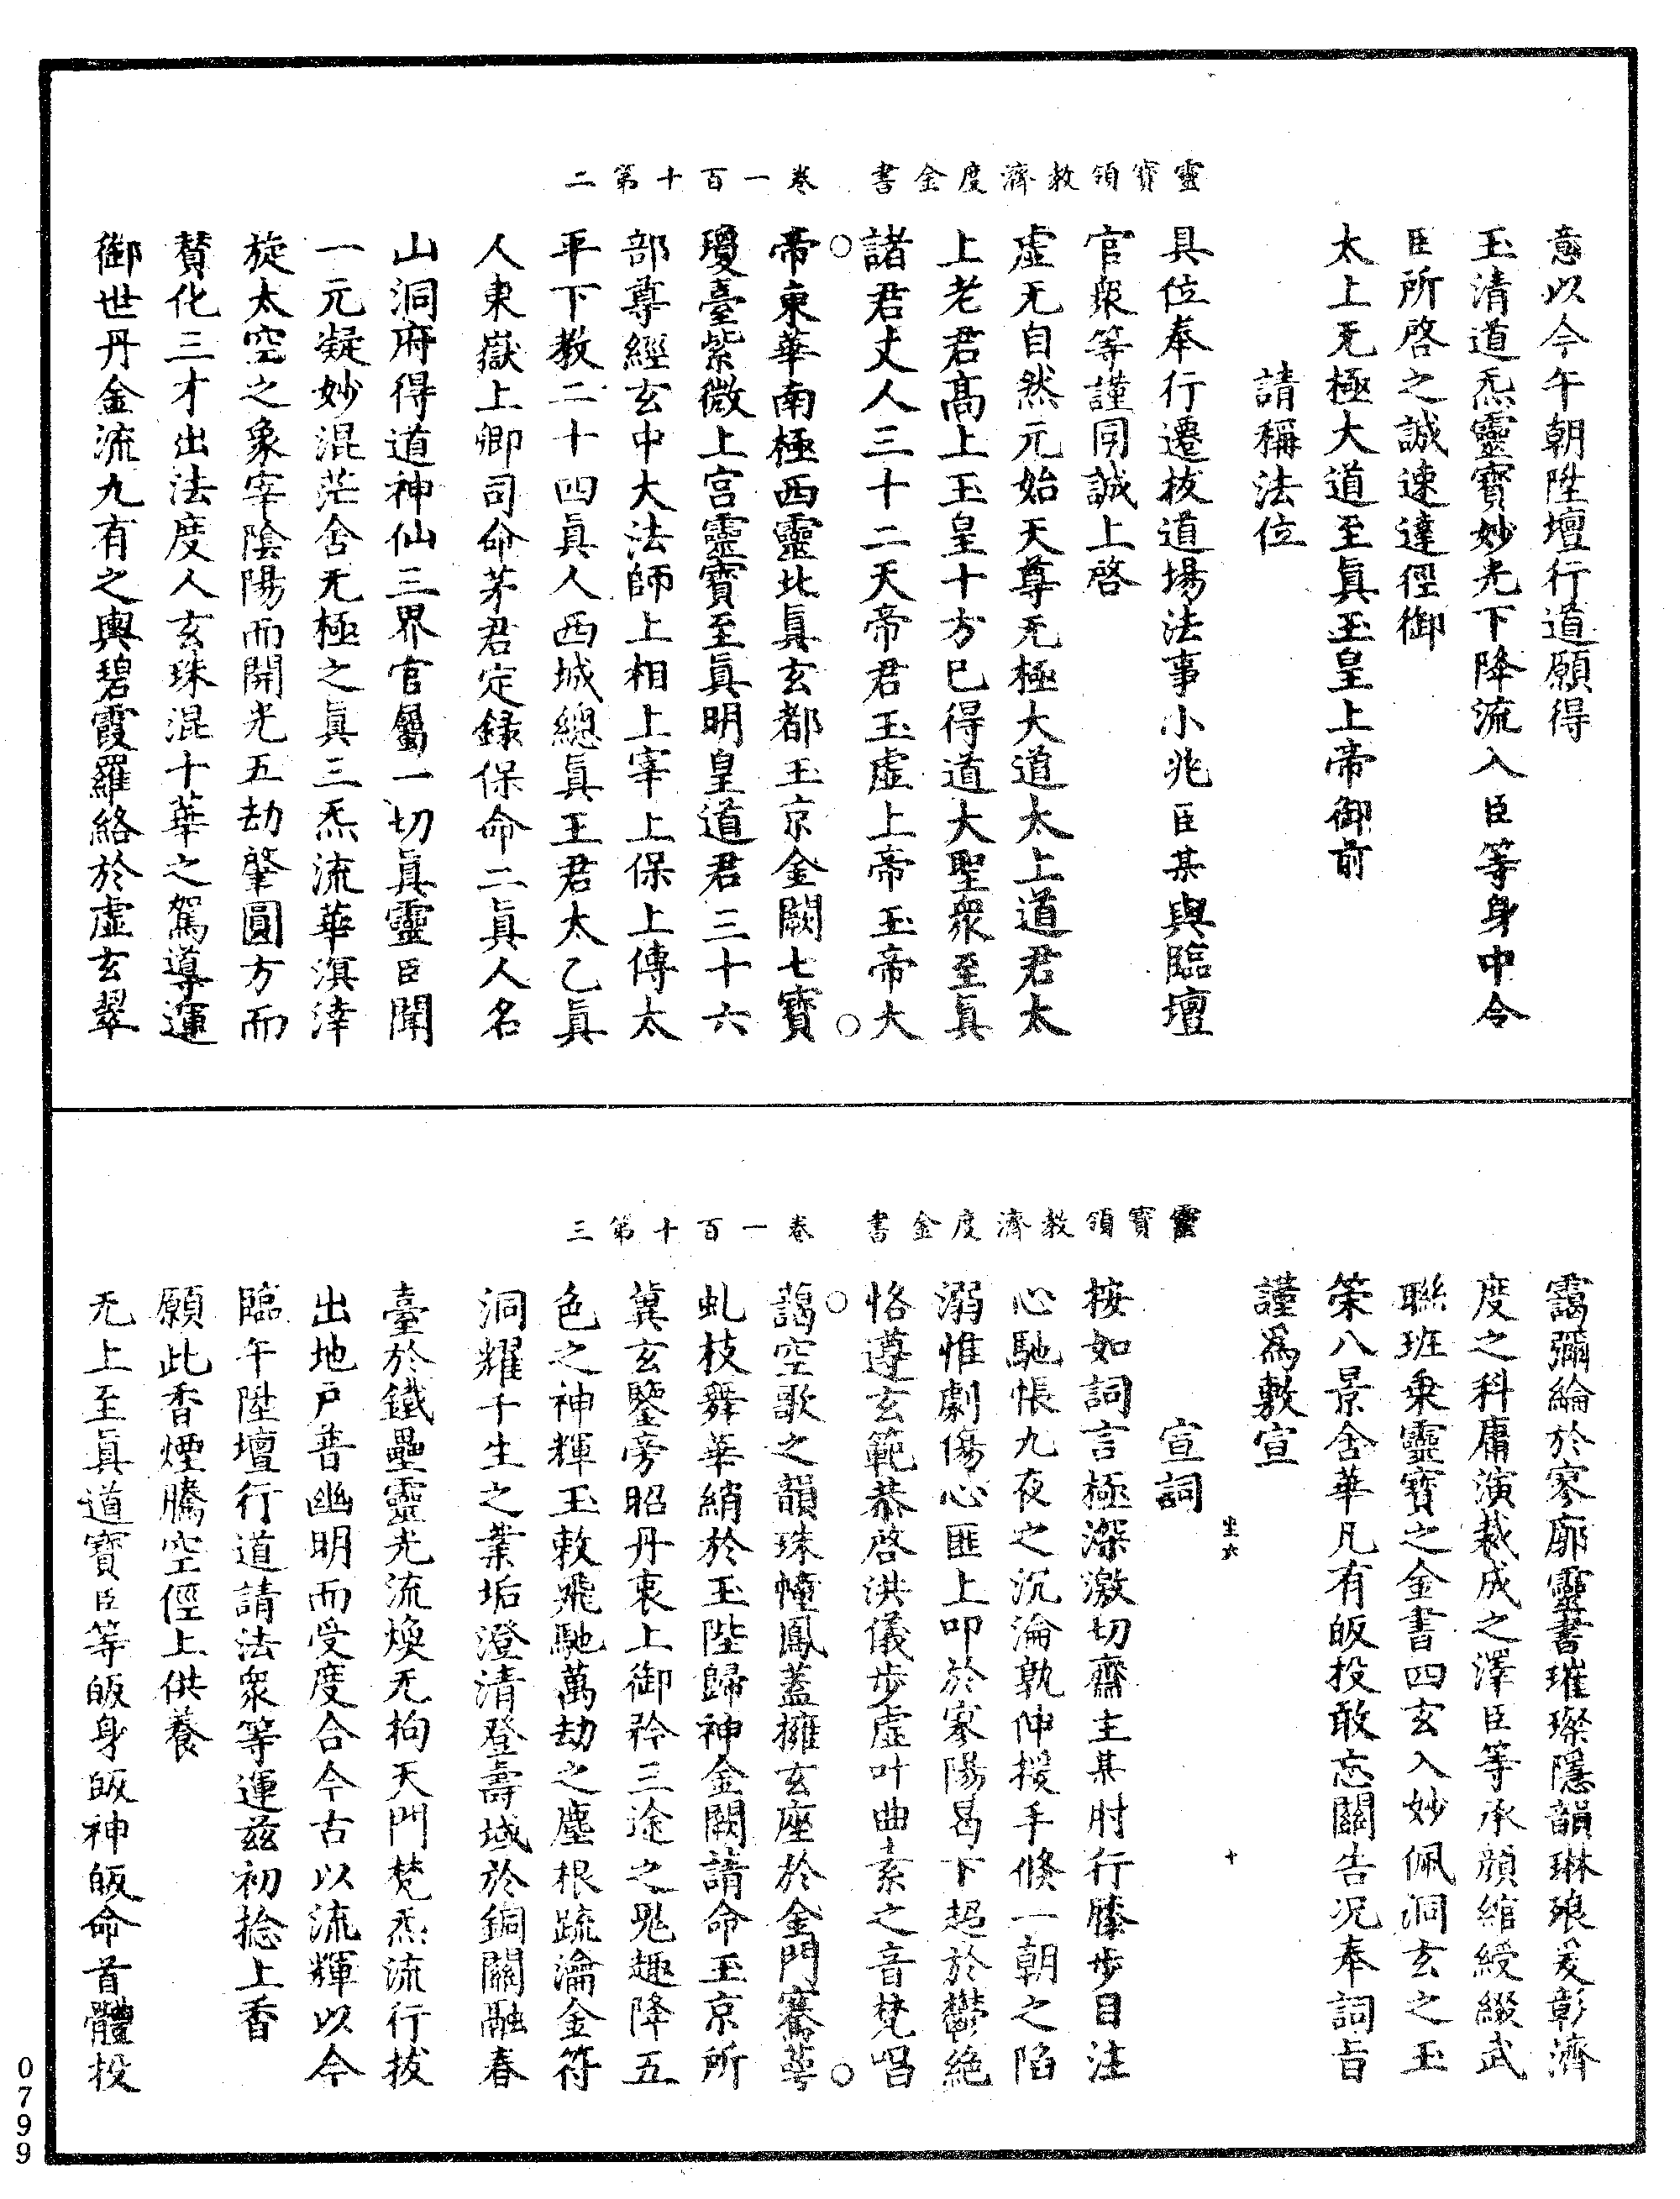 靈寶領教濟度金書　卷一百十第二
意以今午朝陞壇行道願得
玉清道炁靈寶妙光下降流入臣等身中令
臣所啓之誠速達徑御
太上无極大道至眞玉皇上帝御前
請稱法位
具位奉行遷拔道場法事小兆臣某與臨壇
官衆等謹同誠上啓
虛无自然元始天尊无極大道太上道君太
上老君高上玉皇十方已得道大聖衆至眞
諸君丈人三十二天帝君玉虛上帝玉帝大
帝東華南極西靈北眞玄都玉京金闕七寶
瓊臺紫微上宮靈寶至眞明皇道君三十六
部尊經玄中大法師上相上宰上保上傅太
平下教二十四眞人西城總眞王君太乙眞
人東嶽上卿司命茅君定錄保命二眞人名
山洞府得道神仙三界官屬一切眞靈臣聞
一元凝妙混茫含无極之眞三炁流華溟涬
旋太空之象宰陰陽而開光五劫肇圓方而
贊化三才出法度人玄珠混十華之駕導運
御世丹金流九有之輿碧霞羅絡於虛玄翠
靈寶領教濟度金書　卷一百十第三
靄彌綸於寥廓靈書璀璨隱韻琳琅爰彰濟
度之科庸演裁成之澤臣等承顏綰綬綴武
聯班秉靈寶之金書四玄入妙佩洞玄之玉
策八景含華凡有皈投敢忘關告況奉詞旨
謹爲敷宣
宣詞
坐六　十
按如詞言極深激切齋主某肘行膝步目注
心馳悵九夜之沉淪孰伸援手倏一朝之陷
溺惟劇傷心匪上叩於寥陽曷下超於鬱絕
恪遵玄範恭啓洪儀步虛叶曲素之音梵唱
藹空歌之韻珠幢鳳蓋擁玄座於金門騫蕚
虬枝舞華綃於玉陛歸神金闕請命玉京所
冀玄鑒旁昭丹衷上御矜三途之鬼趣降五
色之神輝玉敕飛馳萬劫之塵根疏瀹金符
洞耀千生之業垢澄清登壽域於銅關融春
臺於鐵壘靈光流煥无拘天門梵炁流行拔
出地戶普幽明而受度合今古以流輝以今
臨午陞壇行道請法衆等運茲初捻上香
願此香煙騰空徑上供養
无上至眞道寶臣等皈身皈神皈命首體投
0799